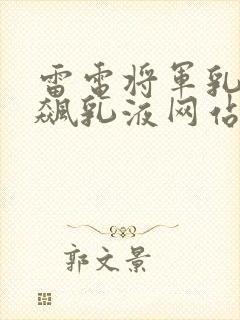 雷电将军乳
飙乳液网站
郭文景